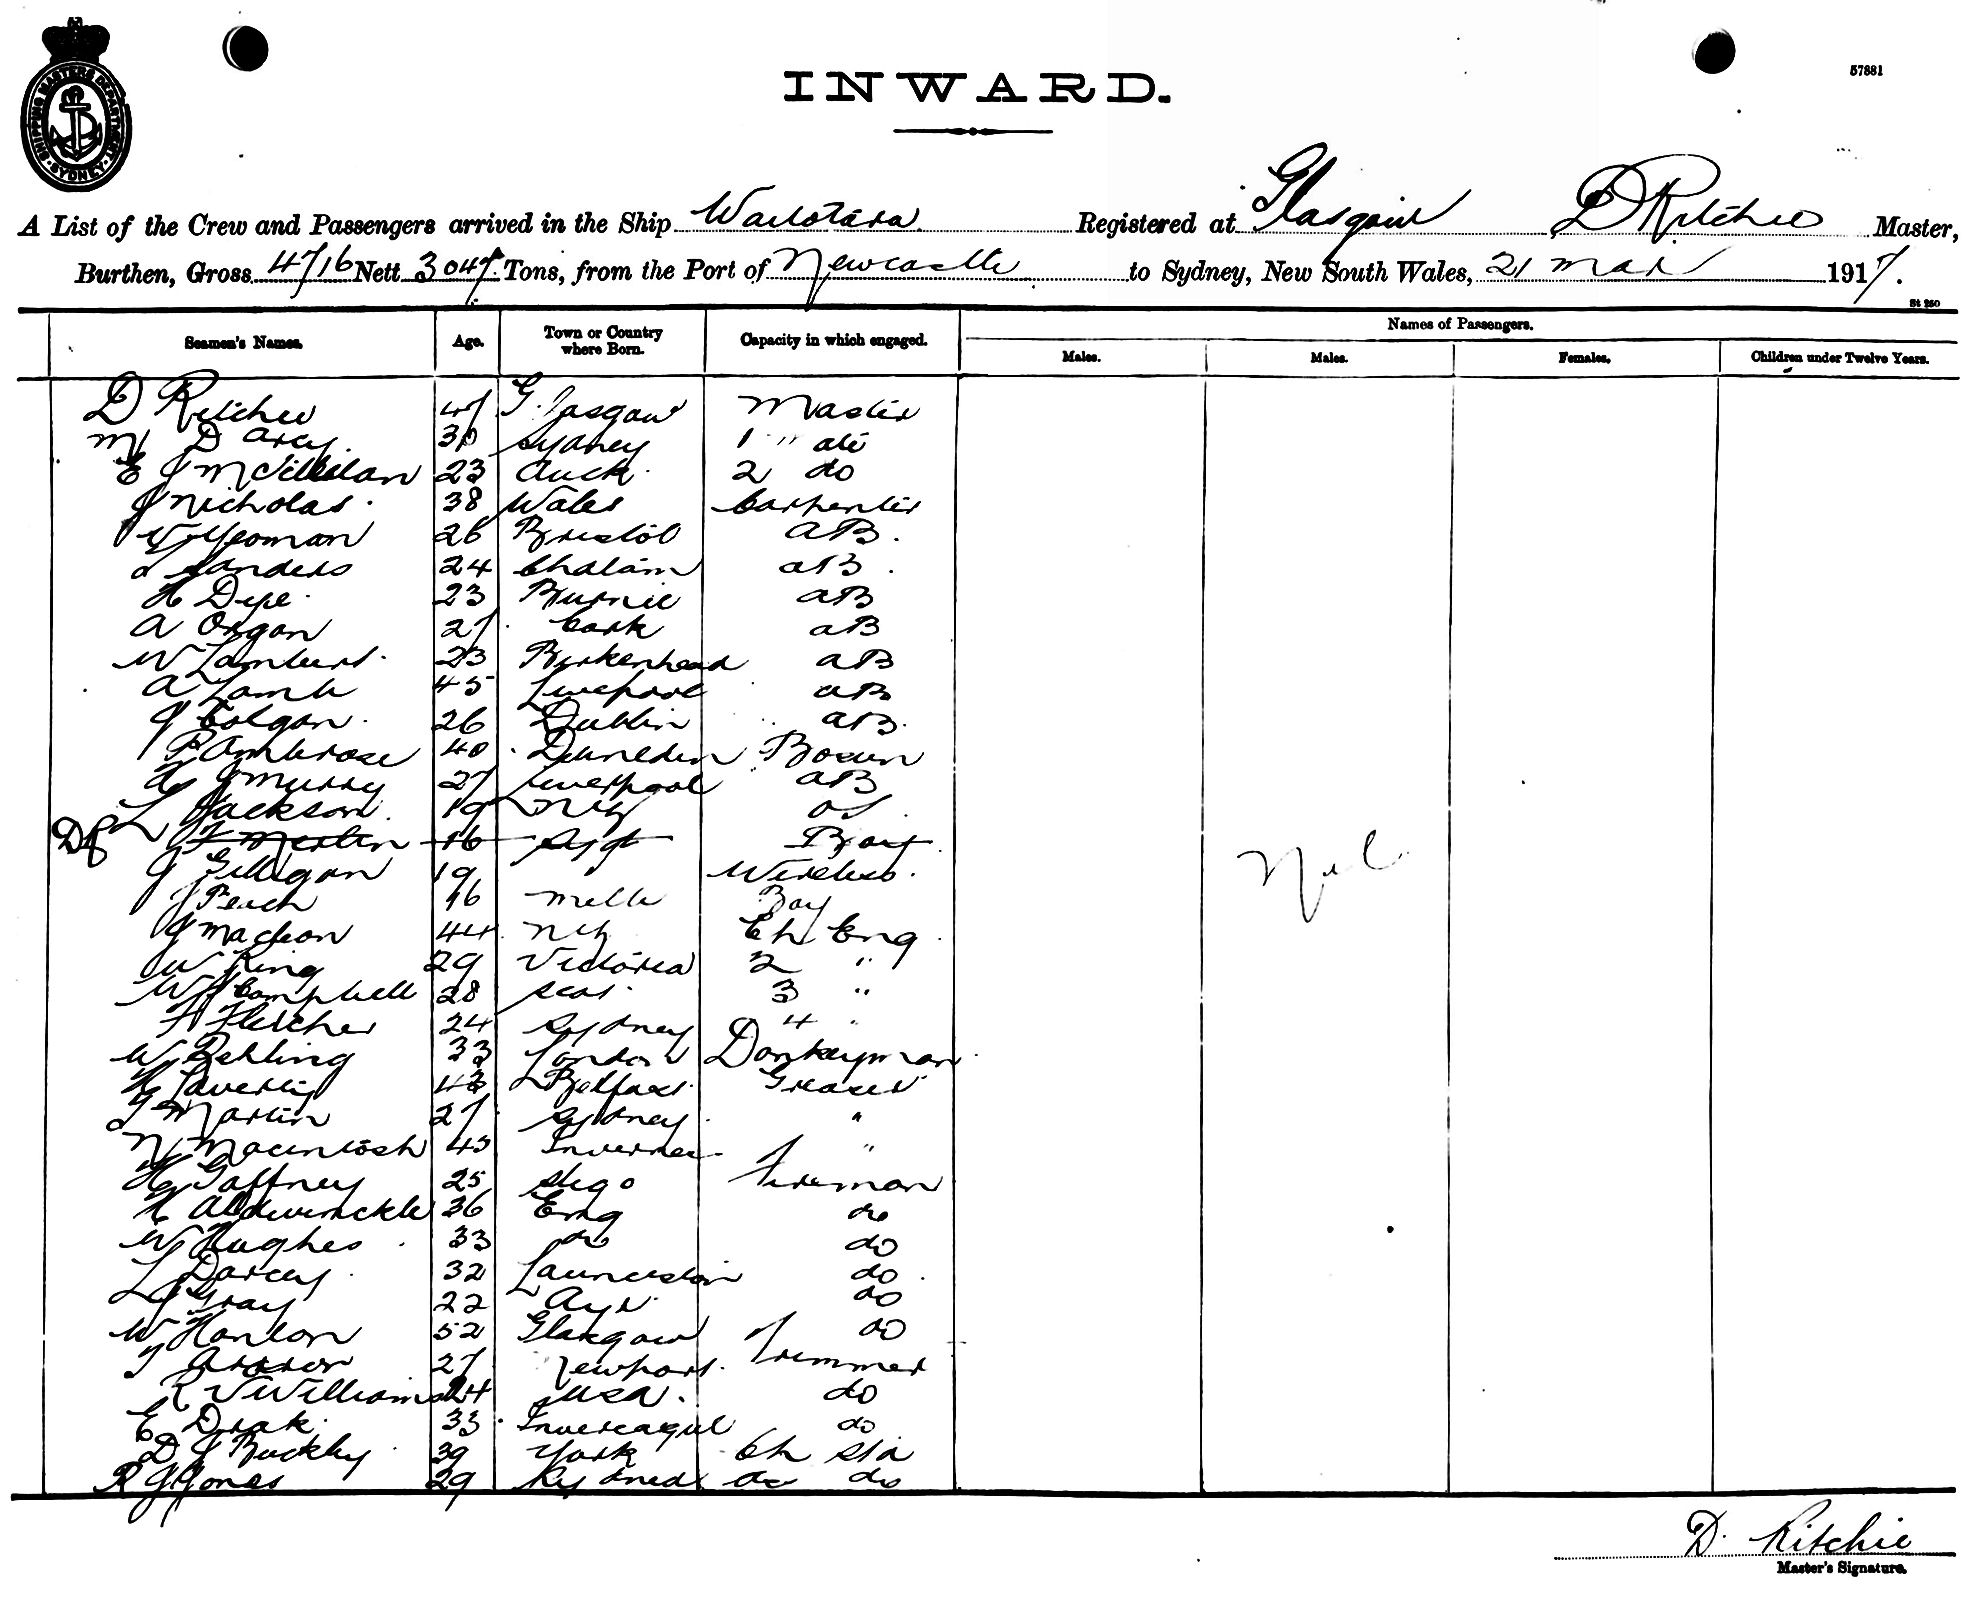 SHIPPING MASTERS DEPARTMENT SYDNEY
57881
INWARD.
A List of the Crew and Passengers arrived in the Ship Waitotara Registered at Glasgow D Ritchie Master,
Burthen, Gross 4716 Nett 3047 Tons, from the Port of Newcastle to Sydney, New South Wales, 21 Mar 1917.
St 250
Seamen's Names. Age. Town or Country where Born. Capacity in which engaged. Names of Passengers.
Males. Males. Females. Children under Twelve Years.
D Ritchie 47 Glasgow Master
M D Arcy 30 Sydney 1 Mate
E J McLellan 23 Auck 2 do
J Nicholas 38 Wales Carpenter
W Yeoman 26 Bristol AB.
Sanders 24 Chatam AB.
H Dye 23 Burnie AB
A Organ 27 Cork AB
W Lambert 23 Birkenhead AB
A Lamb 45 Liverpool AB
J Colgan 26 Dublin AB.
P Ambrose 40 Dunedin Bosun
J Murry 27 Liverpool AB
L Jackson 19 NZ OS
J Martin 16 Syd Boy
J Gilligan 19 Wireless.
J Peach 16 Melb Boy
J Macleon 44 NZ Ch Eng
W King 29 Victoria 2 "
W Campbell 28 Scot 3 "
F Fletcher 24 Sydney 4 "
W Behling 33 London Donkeyman
H Laverty 43 Belfast Greaser
T Martin 27 Sydney "
N Macintosh 43 Inverness "
H Gaffney 25 Sligo Fireman
H Aldwinckle 36 Eng do
W Hughes 33 do do
L Darcey 32 Launceston do
J Gray 22 Ayr do
W Hanlon 52 Glasgow do
T 27 Newport Trimmer
R V Williams 24 USA. do
E Drak 33 Invercagil do
D J Buckley 39 York Ch Std
R J Jones 29 Sydney do do
Nil
D. Ritchie
Master's Signature.